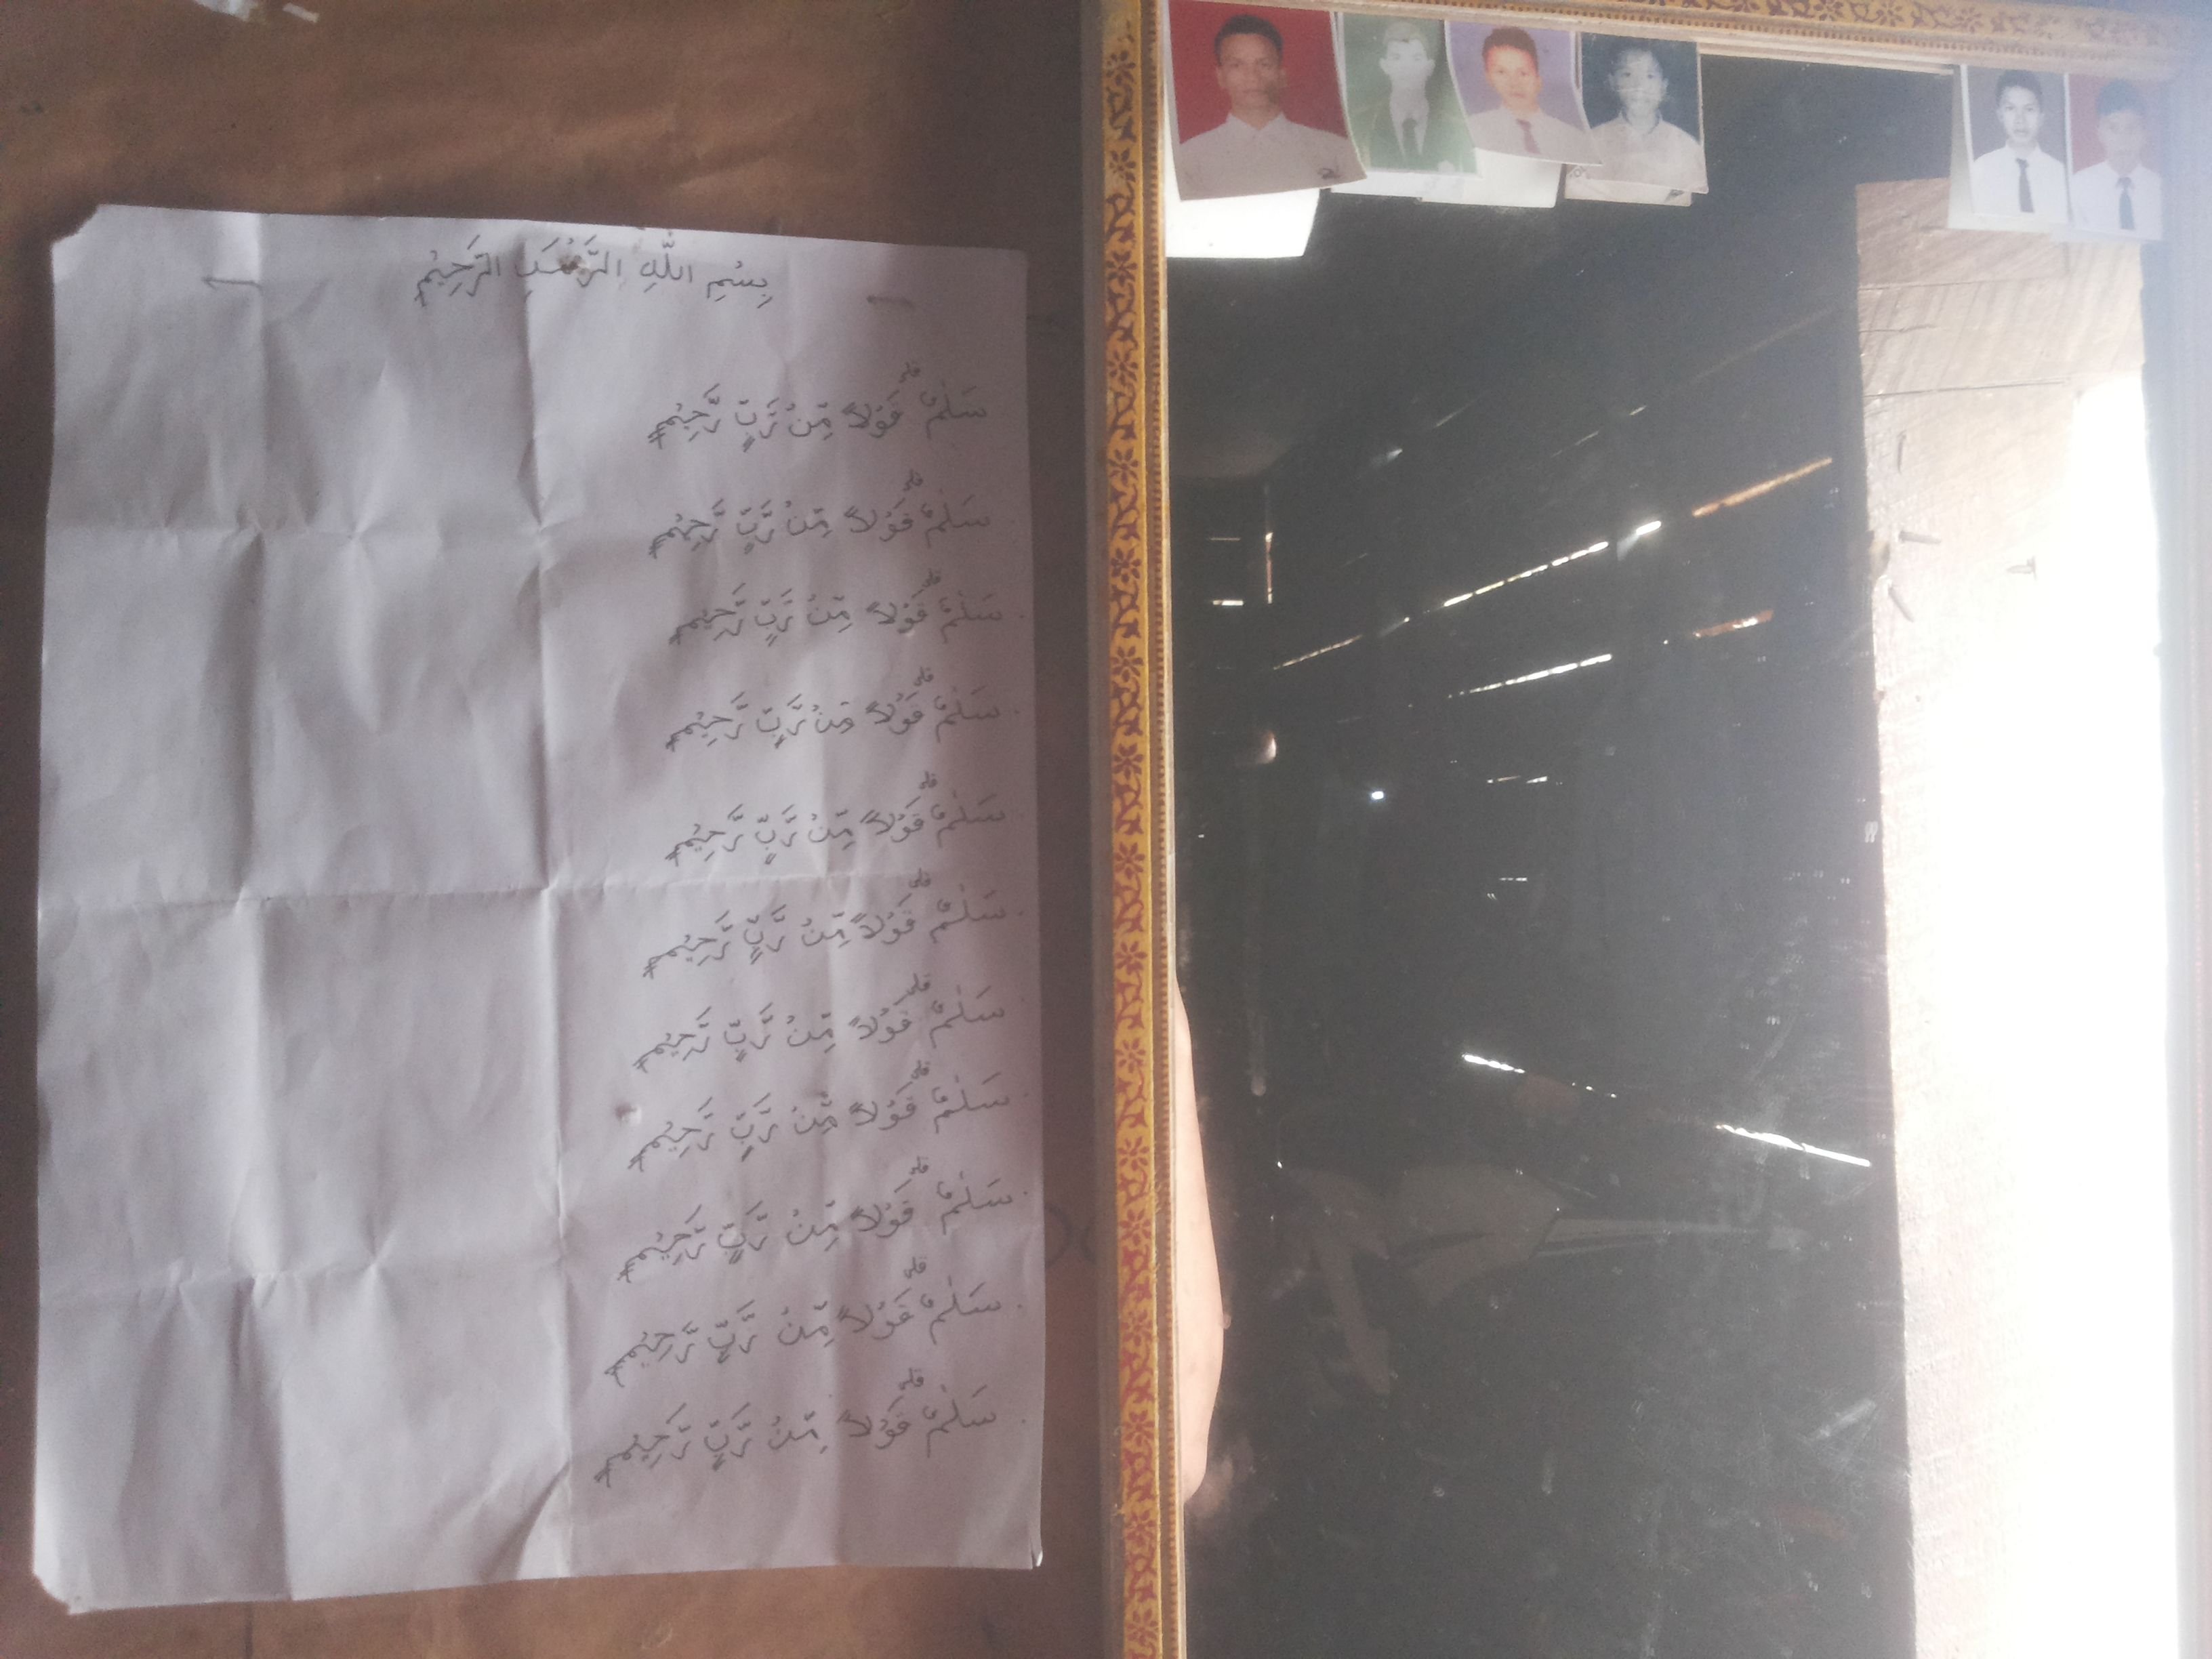 بِسْمِ اللّٰهِ الرَّحْمٰنِ الرَّحِيْمِ
سَلٰمٌ ۗ قَوْلاً مِّنْ رَّبٍّ رَّحِيْمٍ
سَلٰمٌ ۗ قَوْلاً مِّنْ رَّبٍّ رَّحِيْمٍ
سَلٰمٌ ۗ قَوْلاً مِّنْ رَّبٍّ رَّحِيْمٍ
سَلٰمٌ ۗ قَوْلاً مِّنْ رَّبٍّ رَّحِيْمٍ
سَلٰمٌ ۗ قَوْلاً مِّنْ رَّبٍّ رَّحِيْمٍ
سَلٰمٌ ۗ قَوْلاً مِّنْ رَّبٍّ رَّحِيْمٍ
سَلٰمٌ ۗ قَوْلاً مِّنْ رَّبٍّ رَّحِيْمٍ
سَلٰمٌ ۗ قَوْلاً مِّنْ رَّبٍّ رَّحِيْمٍ
سَلٰمٌ ۗ قَوْلاً مِّنْ رَّبٍّ رَّحِيْمٍ
سَلٰمٌ ۗ قَوْلاً مِّنْ رَّبٍّ رَّحِيْمٍ
سَلٰمٌ ۗ قَوْلاً مِّنْ رَّبٍّ رَّحِيْمٍ